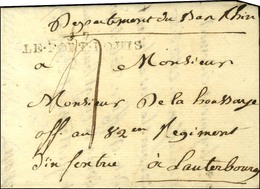 Departement du Bas Rhin
LE-FORT-LOUIS
a Monsieur
Monsieur De la
off. au 82em Regiment
d'infentrie à Lauterbourg